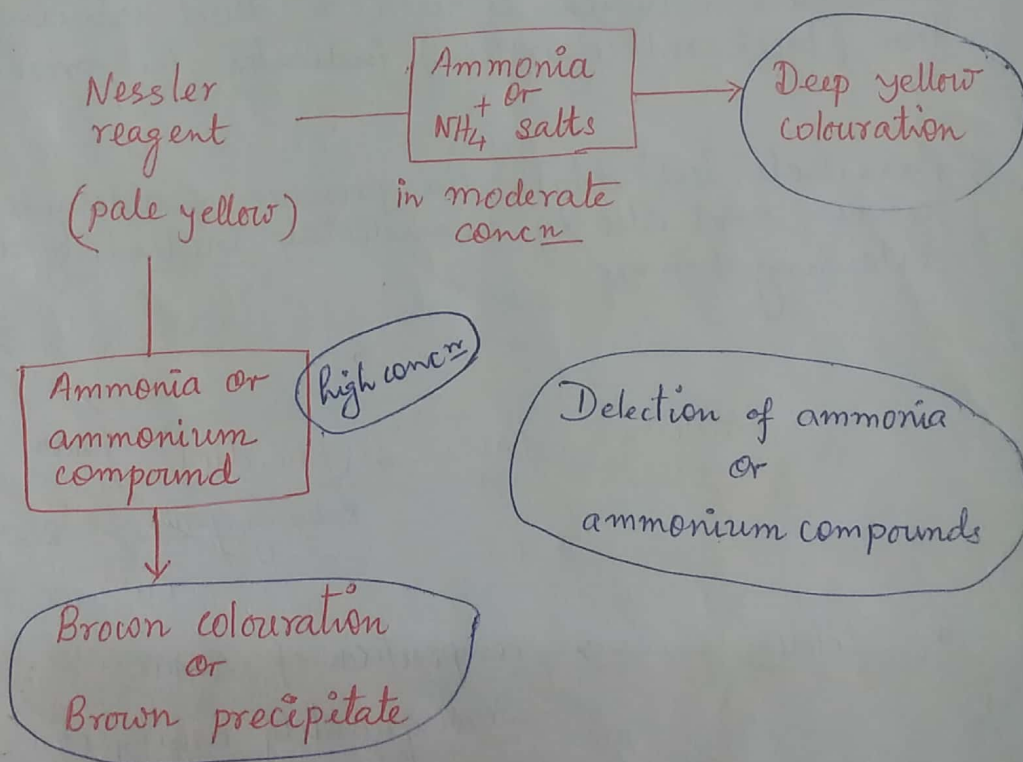 Nessler
reagent
(pale yellow)
Ammonia
or
NH4+ salts
in moderate
concn
Deep yellow
colouration
Ammonia or
ammonium
compound
high concn
Delection of ammonia
or
ammonium compounds
Brown colouration
or
Brown precipitate